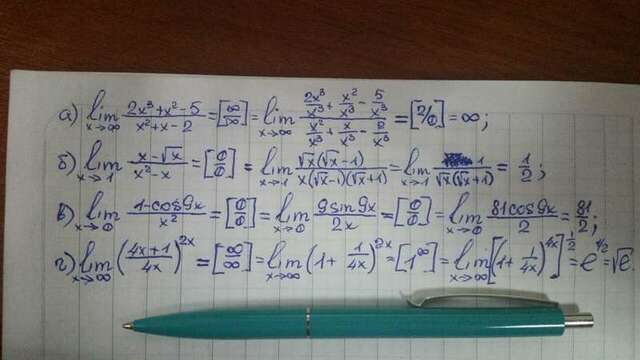 а) lim x→∞ (2x³+x²-5)/(x²+x-2) = [∞/∞] = lim x→∞ (2x³/x³ + x²/x³ - 5/x³)/(x²/x³ + x/x³ - 2/x³) = [2/0] = ∞;
б) lim x→1 (x-√x)/(x²-x) = [0/0] = lim x→1 √x(√x-1)/(x(√x-1)(√x+1)) = lim x→1 1/(√x(√x+1)) = 1/2;
в) lim x→0 (1-cos9x)/x² = [0/0] = lim x→0 9sin9x/2x = [0/0] = lim x→0 81cos9x/2 = 81/2;
г) lim x→∞ ((4x+1)/4x)^2x = [∞/∞] = lim x→∞ (1+1/4x)^2x = [1^∞] = lim x→∞ [(1+1/4x)^4x]^1/2 = e^1/2 = √e